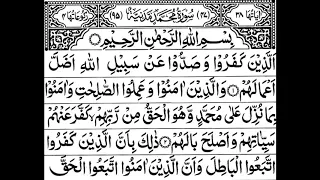 اٰیاتها ۳۸ (۴۷) سُوْرَةُ مُحَمَّدٍ مَّدَنِیَّةٌ (۹۵) رکوعاتها ۴
بِسْمِ اللّٰهِ الرَّحْمٰنِ الرَّحِیْمِ
اَلَّذِیْنَ كَفَرُوْا وَ صَدُّوْا عَنْ سَبِیْلِ اللّٰهِ اَضَلَّ
اَعْمَالَهُمْ۝۱ وَ الَّذِیْنَ اٰمَنُوْا وَ عَمِلُوا الصّٰلِحٰتِ وَ اٰمَنُوْا
بِمَا نُزِّلَ عَلٰى مُحَمَّدٍ وَّ هُوَ الْحَقُّ مِنْ رَّبِّهِمْ كَفَّرَ عَنْهُمْ
سَیِّاٰتِهِمْ وَ اَصْلَحَ بَالَهُمْ۝۲ ذٰلِكَ بِاَنَّ الَّذِیْنَ كَفَرُوا
اتَّبَعُوا الْبَاطِلَ وَ اَنَّ الَّذِیْنَ اٰمَنُوا اتَّبَعُوا الْحَقَّ